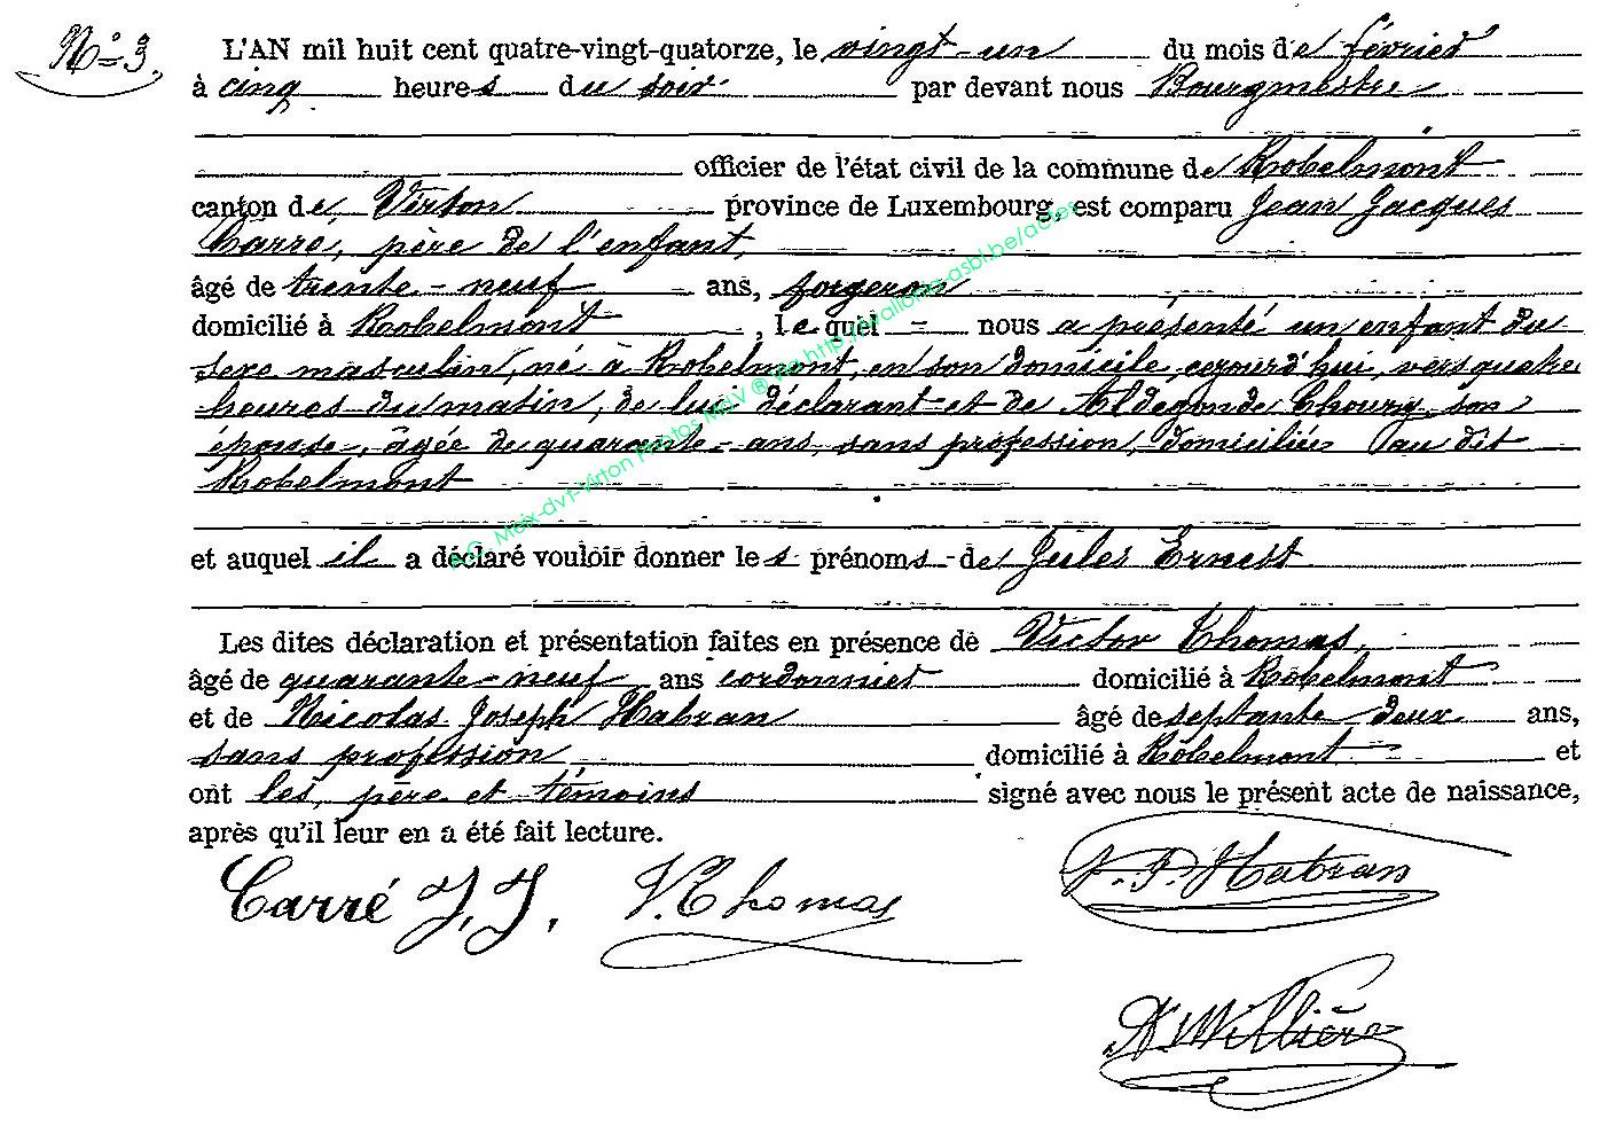 N° 3.
L'AN mil huit cent quatre-vingt-quatorze, le vingt-un du mois de février
à cinq heures du soir par devant nous Bourgmestre
officier de l'état civil de la commune de Robelmont
canton de Virton province de Luxembourg, est comparu Jean Jacques
Carré, père de l'enfant,
âgé de trente-neuf ans, forgeron
domicilié à Robelmont, lequel nous a présenté un enfant du
sexe masculin, né à Robelmont, en son domicile, cejourd'hui, vers quatre
heures du matin, de lui déclarant et de Aldegonde Thoury, son
épouse, âgée de quarante ans, sans profession, domiciliée au dit
Robelmont
et auquel il a déclaré vouloir donner les prénoms de Jules Ernest
Les dites déclaration et présentation faites en présence de Victor Thomas,
âgé de quarante-neuf ans cordonnier domicilié à Robelmont
et de Nicolas Joseph Habran âgé de septante-deux ans,
sans profession domicilié à Robelmont et
ont les, père et témoins signé avec nous le présent acte de naissance,
après qu'il leur en a été fait lecture.
Carré J. J. V. Thomas Habran
A.C. Meix-dvt-Virton Photos MdV ® via http://www.wallonia-asbl.be/actes